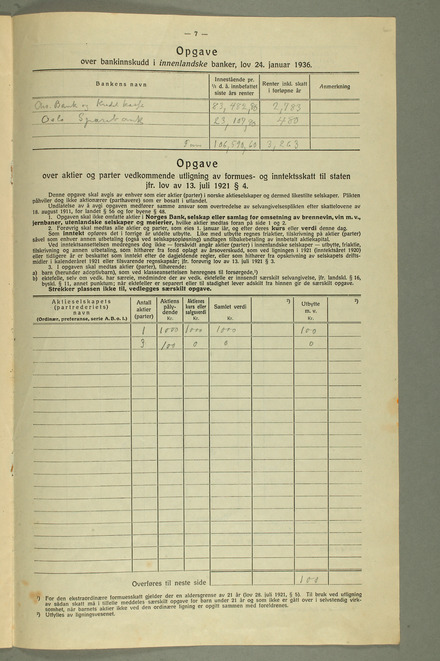 — 7 —
Opgave
over bankinnskudd i innenlandske banker, lov 24. januar 1936.
Bankens navn
Innestående pr. ¹/₁ d. å. innbefattet siste års renter
Renter inkl. skatt i forløpne år
Anmerkning
Bank og 83,482,80 2,783
Oslo Sparebank 23,107,80 480
Sum 106,590,60 3,263
Opgave
over aktier og parter vedkommende utligning av formues- og inntektsskatt til staten
jfr. lov av 13. juli 1921 § 4.
Denne opgave skal avgis av enhver som eier aktier (parter) i norske aktieselskaper og dermed likestilte selskaper. Plikten
påhviler dog ikke aktionærer (parthavere) som er bosatt i utlandet.
Undlatelse av å avgi opgaven medfører samme ansvar som overtredelse av selvangivelsesplikten efter skattelovene av
18. august 1911, for landet § 56 og for byene § 48.
1. Opgaven skal ikke omfatte aktier i Norges Bank, selskap eller samlag for omsetning av brennevin, vin m. v.,
jernbaner, utenlandske selskaper og meierier, hvilke aktier medtas foran på side 1 og 2.
2. Forøvrig skal medtas alle aktier og parter, som eies 1. januar iår, og efter deres kurs eller verdi denne dag.
Som inntekt opføres det i forrige år uddelte utbytte. Like med utbytte regnes friaktier, tilskrivning på aktier (parter)
såvel som enhver annen utbetaling (også ved selskapsopløsning) undtagen tilbakebetaling av innbetalt aktiekapital.
Ved inntektsansettelsen medregnes dog ikke — forskjellig angår aktier (parter) i innenlandske selskaper — utbytte, friaktie,
tilskrivning og annen utbetaling, som hitrører fra fond oplagt av årsoverskudd, som ved ligningen i 1921 (inntektsåret 1920)
eller tidligere år er beskattet som inntekt efter de dagjeldende regler, eller som hitrører fra opskrivning av selskapets drifts-
midler i kalenderåret 1921 eller tilsvarende regnskapsår; jfr. forøvrig lov av 13. juli 1921 § 3.
3. I opgaven skal medtas aktier (parter), tilhørende:
a) barn (herunder adoptivbarn), som ved klasseansettelsen henregnes til forsørgede,¹)
b) ektefelle, selv om vedk. har særeie, medmindre der av vedk. ektefelle er innsendt særskilt selvangivelse, jfr. landskl. § 16,
byskl. § 11, annet punktum; når ektefeller er separert eller til stadighet lever adskilt fra hinnen gir de særskilt opgave.
Strekker plassen ikke til, vedlegges særskilt opgave.
Aktieselskapets (partrederiets) navn (Ordinær, preferanse, serie A. B. o. l.)
Antall aktier (parter)
Aktiens pålydende Kr.
Aktienes kurs eller salgsverdi Kr.
Samlet verdi Kr.
²)
Utbytte m. v. Kr.
²)
1 1000 1000 1000 100
3 100 0 0 0
Overføres til neste side 100
¹) For den ekstraordinære formuesskatt gjelder der en aldersgrense av 21 år (lov 28. juli 1921, § 5). Til bruk ved utligning
av sådan skatt må i tilfelle meddeles særskilt opgave for barn under 21 år og som ikke er gått over i selvstendig virk-
somhet, når barnets aktier ikke ved den ordinære ligning er opgitt sammen med foreldrenes.
²) Utfylles av ligningsvesenet.